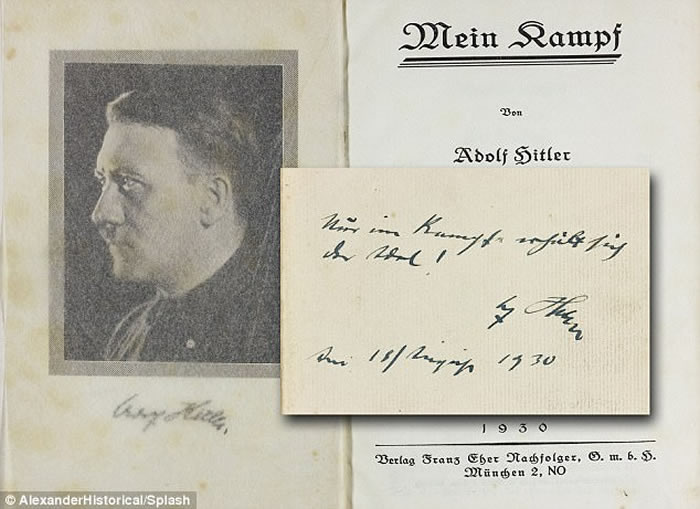 Mein Kampf
Von
Adolf Hitler
Nur im Kampf erhält sich
der Edel!
Hitler
18/August 1930
Adolf Hitler.
1930
Verlag Franz Eher Nachfolger, G. m. b. H.
München 2, NO
© AlexanderHistorical/Splash